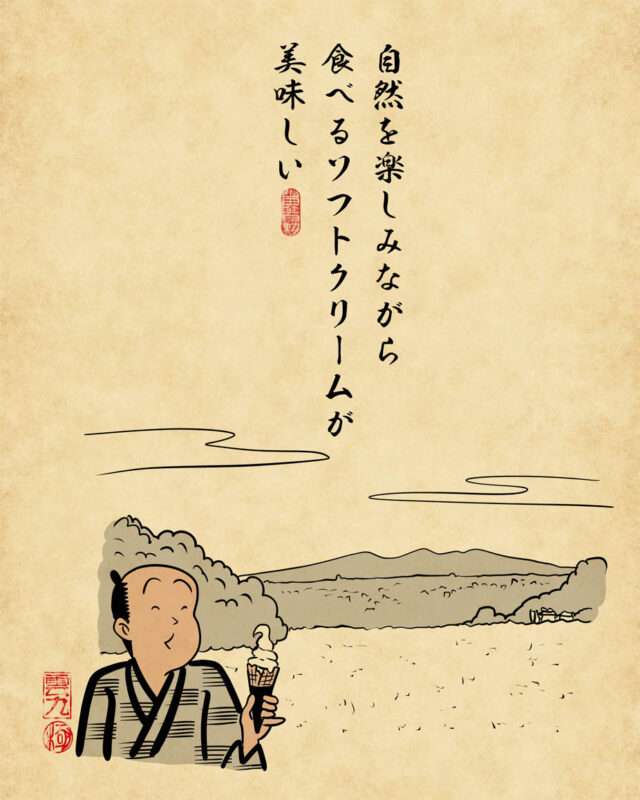 自然を楽しみながら
食べるソフトクリームが
美味しい